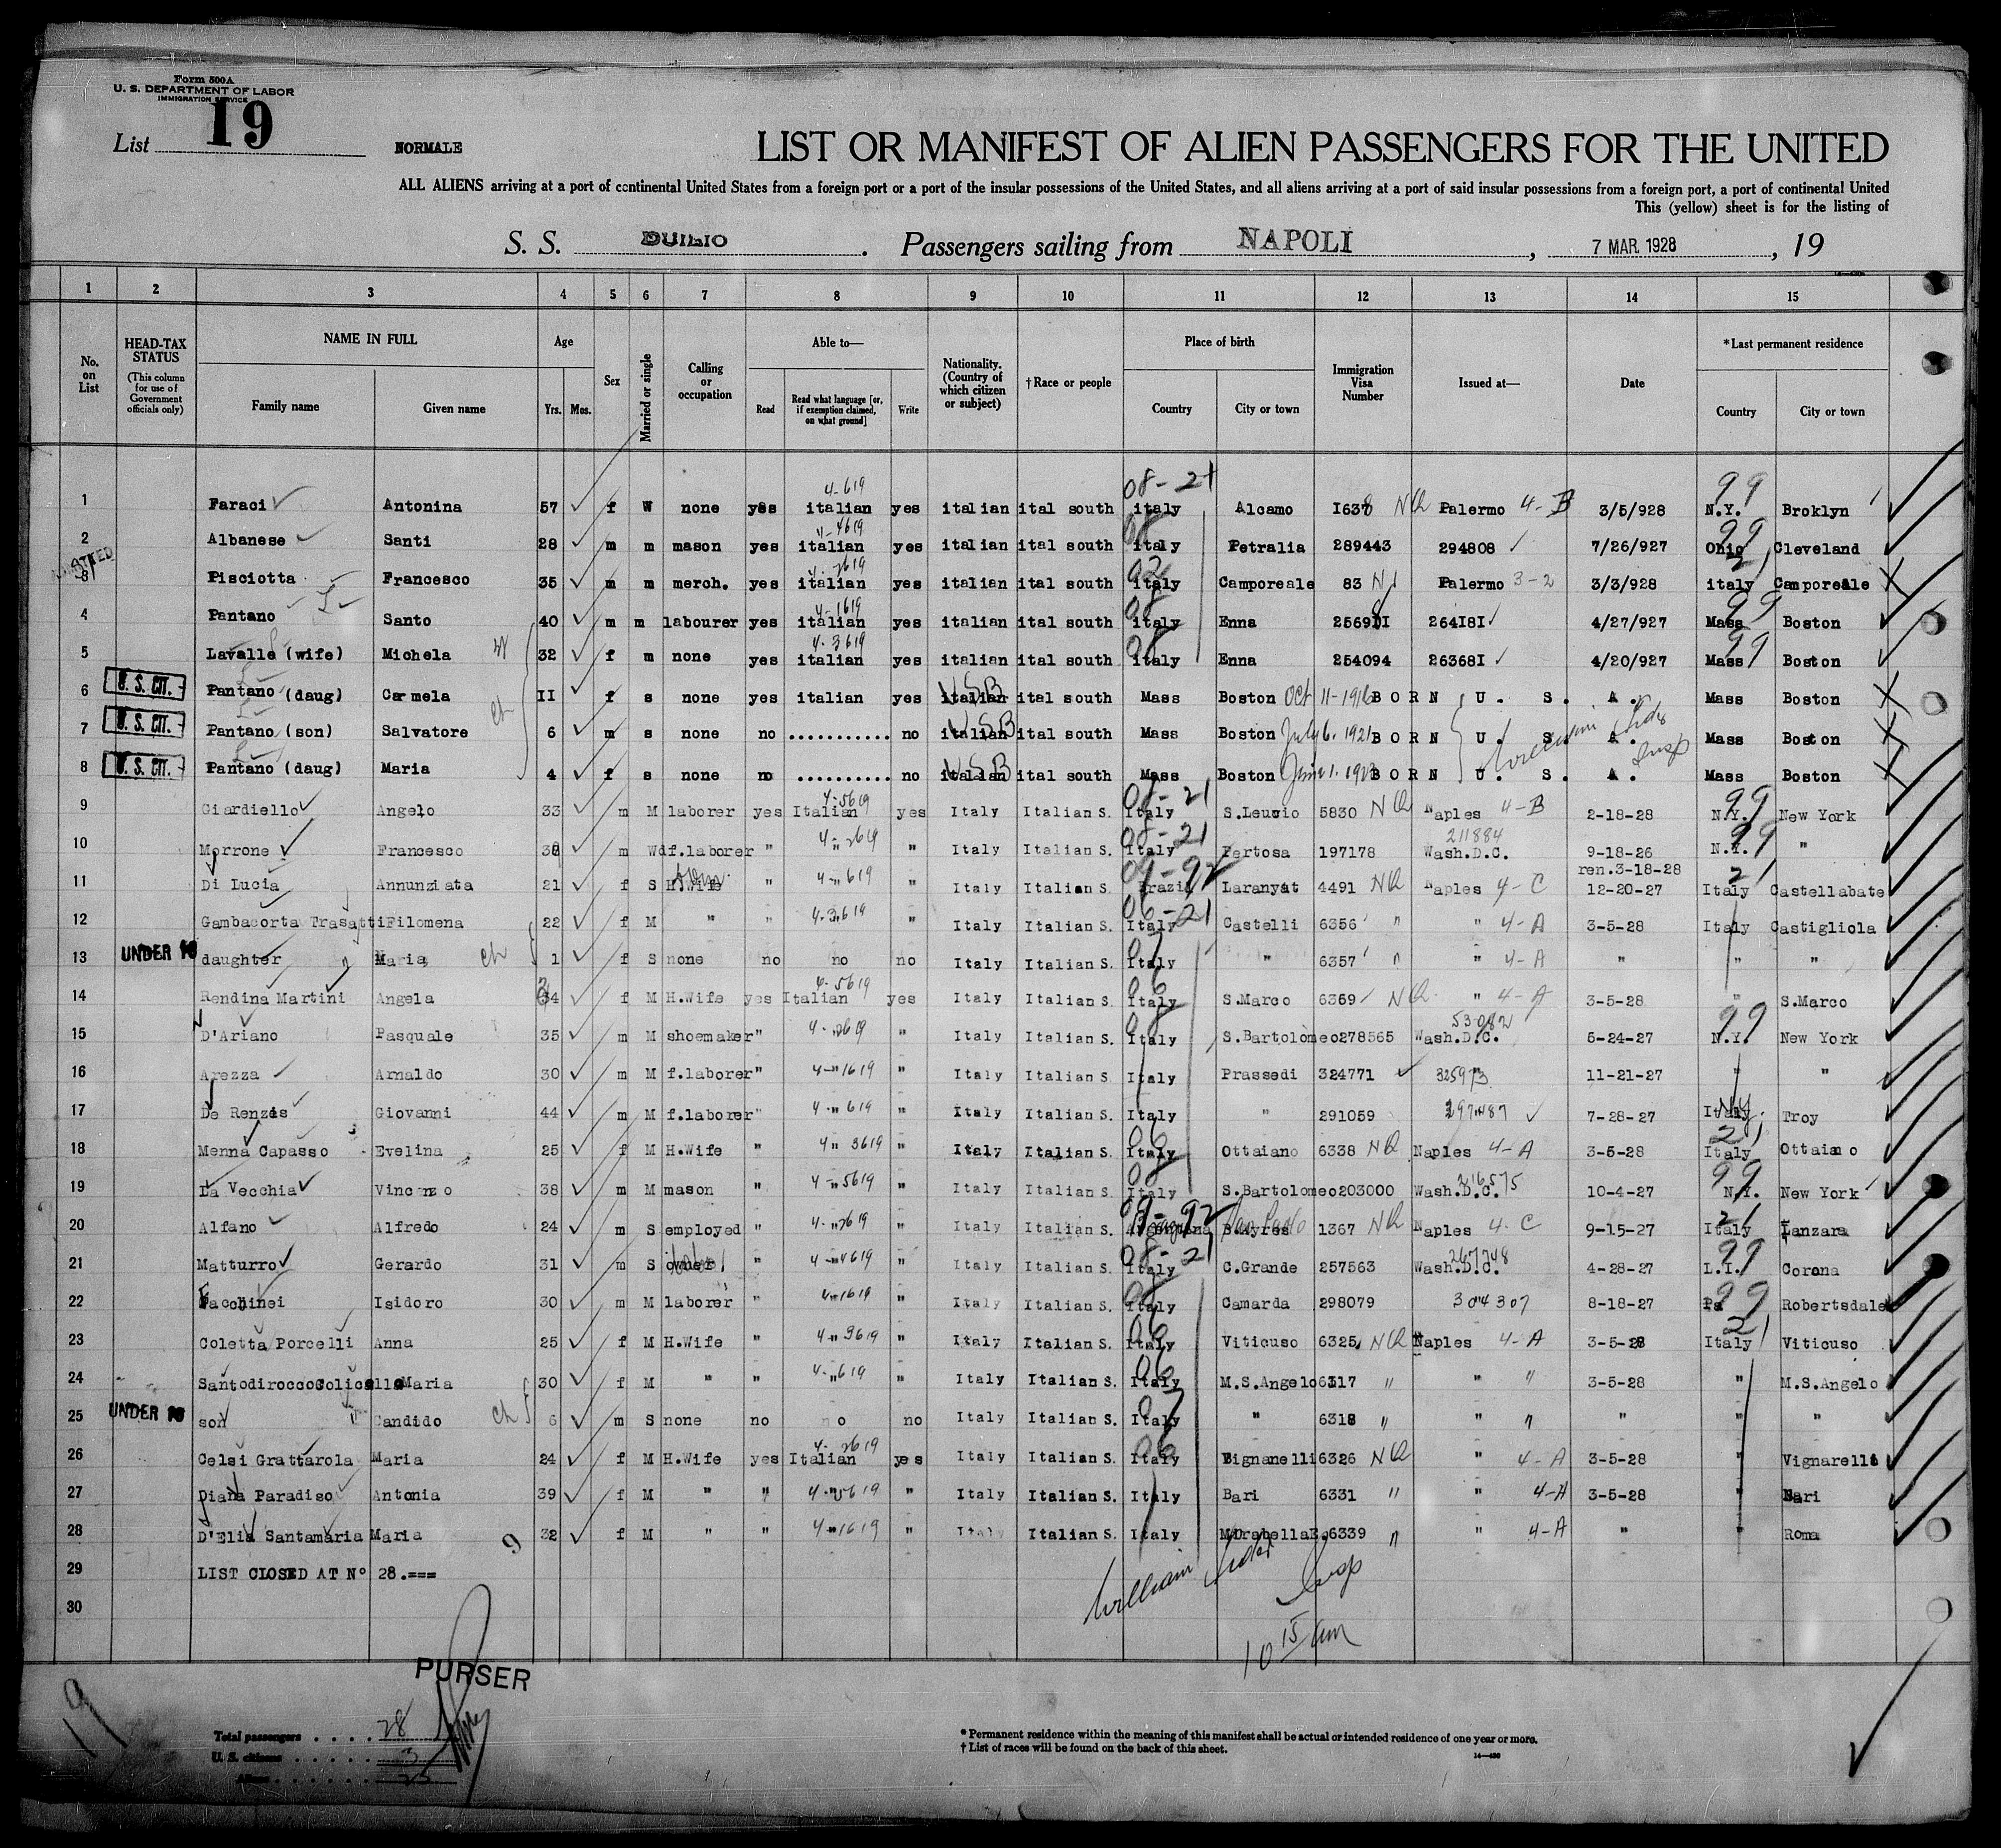 Form 500A
U. S. DEPARTMENT OF LABOR
IMMIGRATION SERVICE
List 19
NORMALE
LIST OR MANIFEST OF ALIEN PASSENGERS FOR THE UNITED
ALL ALIENS arriving at a port of continental United States from a foreign port or a port of the insular possessions of the United States, and all aliens arriving at a port of said insular possessions from a foreign port, a port of continental United
This (yellow) sheet is for the listing of
S. S. DUILIO. Passengers sailing from NAPOLI, 7 MAR. 1928, 19
1 2 3 4 5 6 7 8 9 10 11 12 13 14 15
No. on List
HEAD-TAX STATUS (This column for use of Government officials only)
NAME IN FULL Family name Given name
Age Yrs. Mos.
Sex
Married or single
Calling or occupation
Able to— Read Read what language [or, if exemption claimed, on what ground] Write
Nationality. (Country of which citizen or subject)
†Race or people
Place of birth Country City or town
Immigration Visa Number
Issued at—
Date
*Last permanent residence Country City or town
1 Faraci Antonina 57 f W none yes italian 4-619 yes italian ital south 08-21 italy Alcamo 1638 NQ Palermo 4-B 3/5/928 99 N.Y. Broklyn
2 Albanese Santi 28 m m mason yes italian 4-4619 yes italian ital south 08 italy Petralia 289443 294808 7/26/927 99 Ohio Cleveland
3 Pisciotta Francesco 35 m m merch. yes italian 4-2619 yes italian ital south 02 italy Camporeale 83 Palermo 3-2 3/3/928 21 italy Camporeale X
4 Pantano Santo 40 m m labourer yes italian 4-1619 yes italian ital south 08 italy Enna 264181 4/27/927 99 Mass Boston
5 Lavalle (wife) Michela W 32 f m none yes italian 4-3619 yes italian ital south 08 italy Enna 254094 263681 4/20/927 99 Mass Boston
6 U. S. CIT. Pantano (daug) Carmela II f s none yes italian yes italian USB ital south Mass Boston Oct 11-1916 BORN U. S. A. Mass Boston X
7 U. S. CIT. Pantano (son) Salvatore ch 6 m s none no ........... no italian USB ital south Mass Boston July 6. 1921 BORN U. S. A. Mass Boston X
8 U. S. CIT. Pantano (daug) Maria 4 f s none no .......... no italian USB ital south Mass Boston June 1. 1923 BORN U. S. A. Mass Boston X
9 Ciardiello Angelo 33 m M laborer yes Italian 4-5619 yes Italy Italian S. 08-21 Italy S.Leucio 5830 NQ Naples 4-B 2-18-28 99 N.Y. New York
10 Morrone Francesco 38 m Wd f.laborer " 4-2619 " Italy Italian S. 08-21 Italy Pertosa 197178 211884 Wash.D.C. 9-18-26 99 N.Y. "
ren.3-18-28
11 Di Lucia Annunziata 21 f S H.Wife " 4-"619 " Italy Italian S. 09-92 Brazil Laranyat 4491 NQ Naples 4-C 12-20-27 21 Italy Castellabate
12 Gambacorta Trasatti Filomena 22 f M " " 4-3619 " Italy Italian S. 06-21 Italy Castelli 6356 " " 4-A 3-5-28 Italy Castigliola
13 UNDER 16 daughter Maria ch 1 f S none no no no Italy Italian S. 07 Italy " 6357 " " 4-A " " "
14 Rendina Martini Angela 34 f M H.Wife yes Italian 4-5619 yes Italy Italian S. 06 Italy S.Marco 6359 NQ " 4-A 3-5-28 " S.Marco
15 D'Ariano Pasquale 35 m M shoemaker " 4-2619 " Italy Italian S. 08 Italy S.Bartolomeo 278565 53082 Wash.D.C. 5-24-27 99 N.Y. New York
16 Arezza Arnaldo 30 m M f.laborer " 4-"1619 " Italy Italian S. Italy Prassedi 324771 325973 11-21-27 " "
17 De Renzis Giovanni 44 m M f.laborer " 4-"619 " Italy Italian S. Italy " 291059 297487 7-28-27 Italy N.Y. Troy
18 Menna Capasso Evelina 25 f M H.Wife " 4"3619 " Italy Italian S. 06 Italy Ottaiano 6338 NQ Naples 4-A 3-5-28 21 Italy Ottaiano
19 La Vecchia Vincenzo 38 m M mason " 4-"5619 " Italy Italian S. 08 Italy S.Bartolomeo 203000 Wash.D.C. 216575 10-4-27 99 N.Y. New York
20 Alfano Alfredo 24 m S employed " 4-"2619 " Italy Italian S. 09-92 Argentina B.Ayres Sao Paolo 1367 NQ Naples 4-C 9-15-27 21 Italy Lanzara
21 Matturro Gerardo 31 m S owner " 4-"4619 " Italy Italian S. 08-21 Italy C.Grande 257563 267748 Wash.D.C. 4-28-27 99 L.I. Corona
22 Facchinei Isidoro 30 m M laborer " 4"1619 " Italy Italian S. 08 Italy Camarda 298079 304307 8-18-27 99 Pa Robertsdale
23 Coletta Porcelli Anna 25 f M H.Wife " 4-"3619 " Italy Italian S. 06 Italy Viticuso 6325 NQ Naples 4-A 3-5-28 21 Italy Viticuso
24 Santodirocco Maria 30 f M " " 4-"619 " Italy Italian S. 06 Italy M.S.Angelo 6317 " " " 3-5-28 " M.S.Angelo
25 UNDER 16 son Candido ch 6 m S none no no no Italy Italian S. 07 Italy " 6318 " " " " " "
26 Celsi Grattarola Maria 24 f M H.Wife yes Italian 4-2619 yes Italy Italian S. 06 Italy Bignanelli 6326 NQ " 4-A 3-5-28 " Vignarelli
27 Diana Paradiso Antonia 39 f M " " 4-"5619 " Italy Italian S. Italy Bari 6331 " " 4-A 3-5-28 " Bari
28 D'Elia Santamaria Maria 9 32 f M " " 4-"1619 " Italy Italian S. Italy MirabellaE. 6339 " " 4-A " " Roma
29 LIST CLOSED AT N° 28.===
30
William Insp
10 15 am
PURSER
19
Total passengers .... 28
U. S. citizens ...... 3
Aliens ...... 25
* Permanent residence within the meaning of this manifest shall be actual or intended residence of one year or more.
† List of races will be found on the back of this sheet.